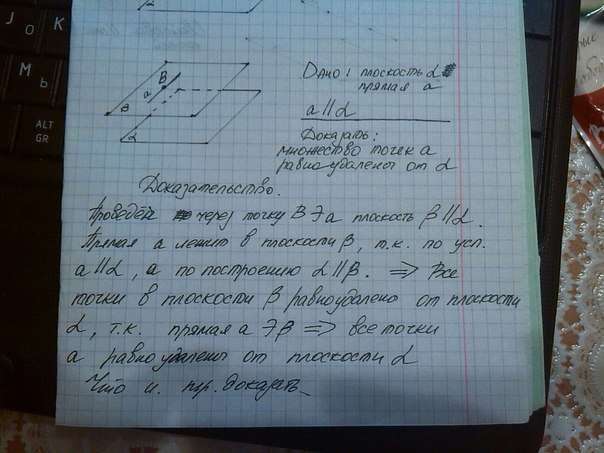 J
K
Ó
M
Ь
ALT
GR
α
В
а
β
α
Дано: плоскость α
прямая а
а || α
Доказать:
множество точек а
равноудалены от α
Доказательство.
Проведём через точку В ∋ а плоскость β || α.
Прямая а лежит в плоскости β, т.к. по усл.
а || α, а по построению α || β. ⟹ Все
точки в плоскости β равноудалено от плоскости
α, т.к. прямая а ∋ β ⟹ все точки
а равноудалены от плоскости α
Что и тр. доказать